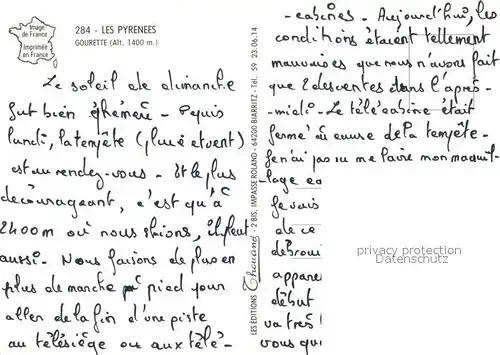 Image
de France
Imprimée
en France
284 - LES PYRENEES
GOURETTE (Alt. 1400 m.)
Le soleil de dimanche
fut bien éphémère - Depuis
lundi, la tempête (pluie et vent)
est au rendez-vous - Et le plus
décourageant, c'est qu'à
2400m où nous skions, il pleut
aussi. Nous faisons de plus en
plus de marche à pied pour
aller de la fin d'une piste
au télésiège ou aux télé-
LES ÉDITIONS Thouand - 2 BIS, IMPASSE ROLAND - 64200 BIARRITZ - Tél. 59 23.06.14
-cabines - Aujourd'hui, les
conditions étaient tellement
mauvaises que nous n'avons fait
que 2 descentes dans l'après-
-midi - Le télécabine était
fermé au cause de la tempête -
Je n'ai pas pu me faire mon maquil-
-lage
je vais
de ce
débroui
appare
début
va très
vous qui
privacy protection
Datenschutz